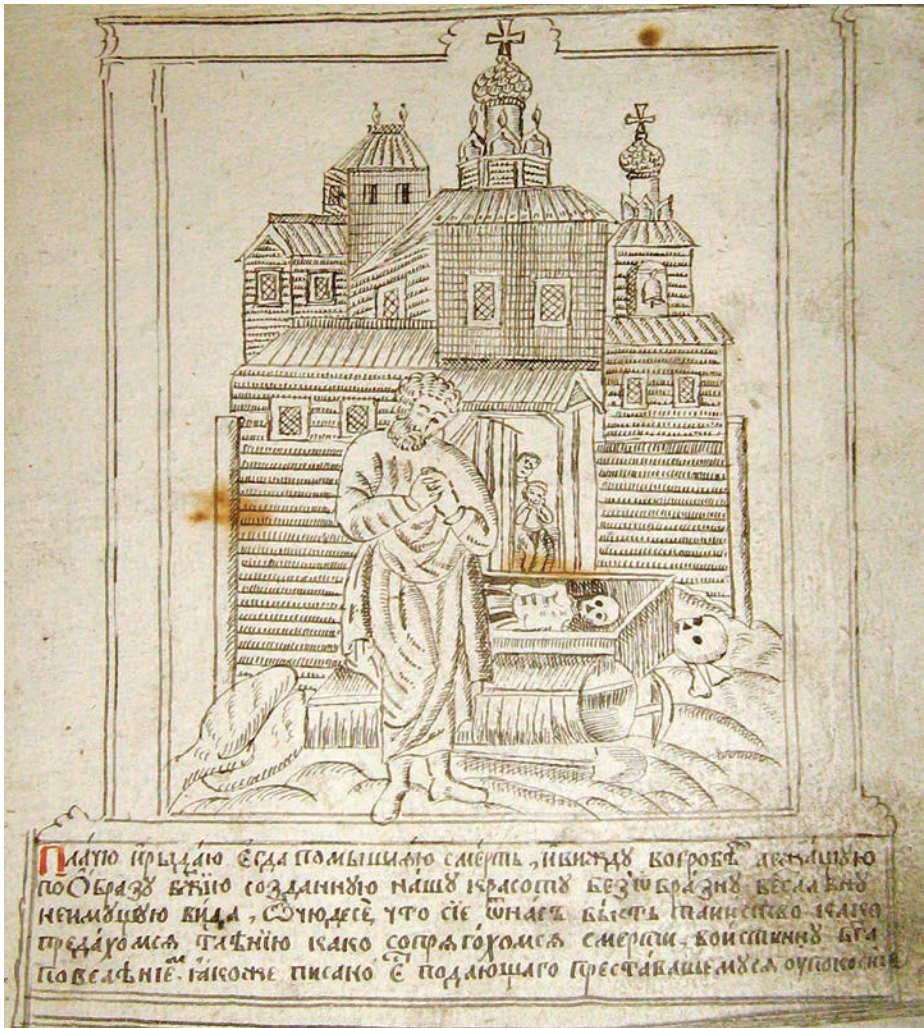 Пла́чю и҆рыда́ю є҆гда помышлѧ́ю сме́рть, и҆ви́ждꙋ вогробѣⷯ лежа́щꙋю
поо҆́бразꙋ бж҃їю созда́ннꙋю на́шꙋ красотꙋ̀ безѡ́бра́знꙋ бесла́внꙋ
неимꙋ́щꙋю ви́да, ѽчюдесѐ, что сїе ѿна́съ бы́сть таинство како
преда́хомсѧ тлѣ́нїю како сопрѧго́хомсѧ сме́рти, вои́стиннꙋ бг҃а
повелѣ́нїеⷨ. ꙗ҆́коже писано є҆ⷭ҇ подаю́щаго преста́вльшемꙋсѧ оупокоенїе